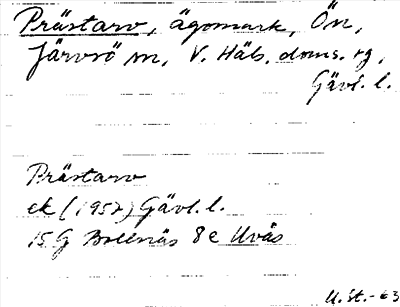 Prästarv, ägomark, Ön,
Järvsö sn, V. Häls. doms. sg,
Gävl. l.
Prästarv
ek (1957) Gävl. l.
15 G Bollnäs 8 e Uvås
U. St. -63